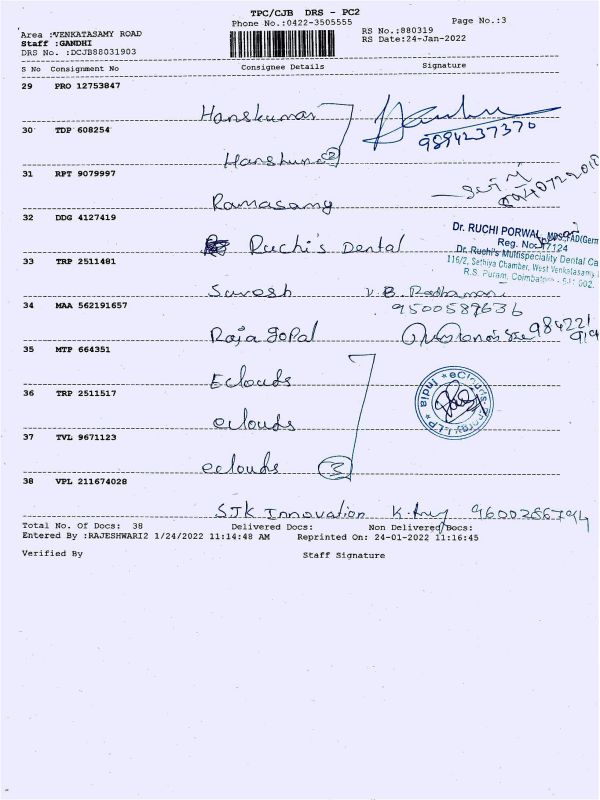 TPC/CJB DRS - PC2
Phone No.:0422-3505555
Page No.:3
Area :VENKATASAMY ROAD
RS No.:880319
Staff :GANDHI
RS Date:24-Jan-2022
DRS No. :DCJB88031903
S No Consignment No Consignee Details Signature
29 PRO 12753847
Hanskumar
9894237370
30 TDP 608254
31 RPT 9079997
Ramasamy
32 DDG 4127419
Ruchi's Dental
Dr. RUCHI PORWAL, MDS, FAD(Germ
Reg. No: 17124
Dr. Ruchi's Multispeciality Dental Ca
116/2, Sethiya Chamber, West Venkatasamy
R.S. Puram, Coimbatore - 641 002.
33 TRP 2511481
Suresh
9500589636
34 MAA 562191657
Raja gopal
984221
35 MTP 664351
Eclouds
36 TRP 2511517
eclouds
eClouds Energy LLP * India *
37 TVL 9671123
eclouds 3
38 VPL 211674028
SJK Innovation 9600286794
Total No. Of Docs: 38 Delivered Docs: Non Delivered Docs:
Entered By :RAJESHWARI2 1/24/2022 11:14:48 AM Reprinted On: 24-01-2022 11:16:45
Verified By Staff Signature